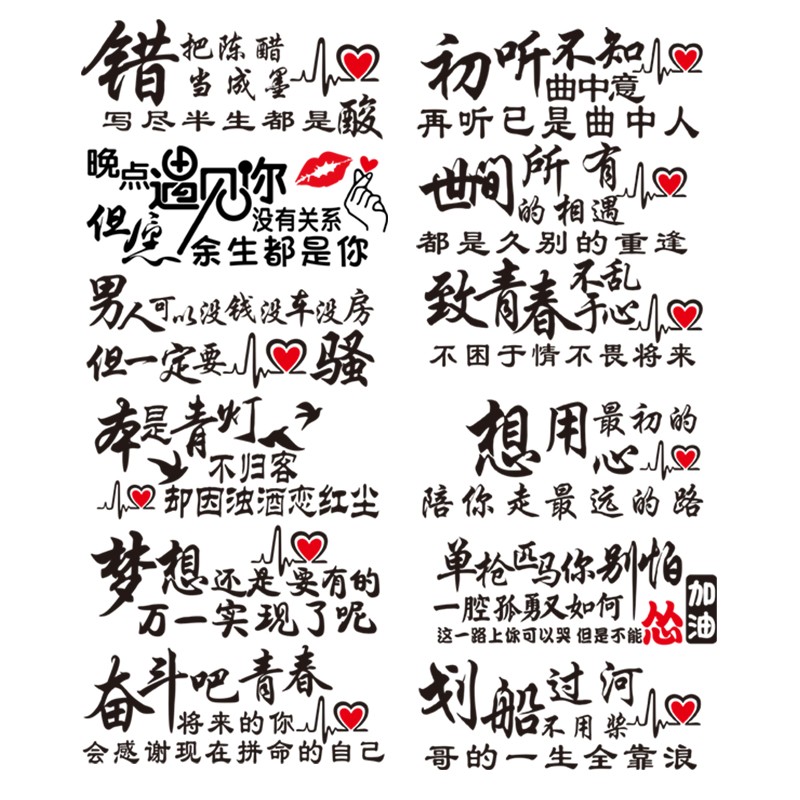 错把陈醋
当成墨
写尽半生都是酸
晚点遇见你
没有关系
但愿余生都是你
男人可以没钱没车没房
但一定要骚
本是青灯
不归客
却因浊酒恋红尘
梦想还是要有的
万一实现了呢
奋斗吧青春
将来的你
会感谢现在拼命的自己
初听不知
曲中意
再听已是曲中人
世间所有
的相遇
都是久别的重逢
致青春不乱
于心
不困于情不畏将来
想用最初的
心
陪你走最远的路
单枪匹马你别怕
一腔孤勇又如何
这一路上你可以哭 但是不能怂
加油
划船过河
不用桨
哥的一生全靠浪